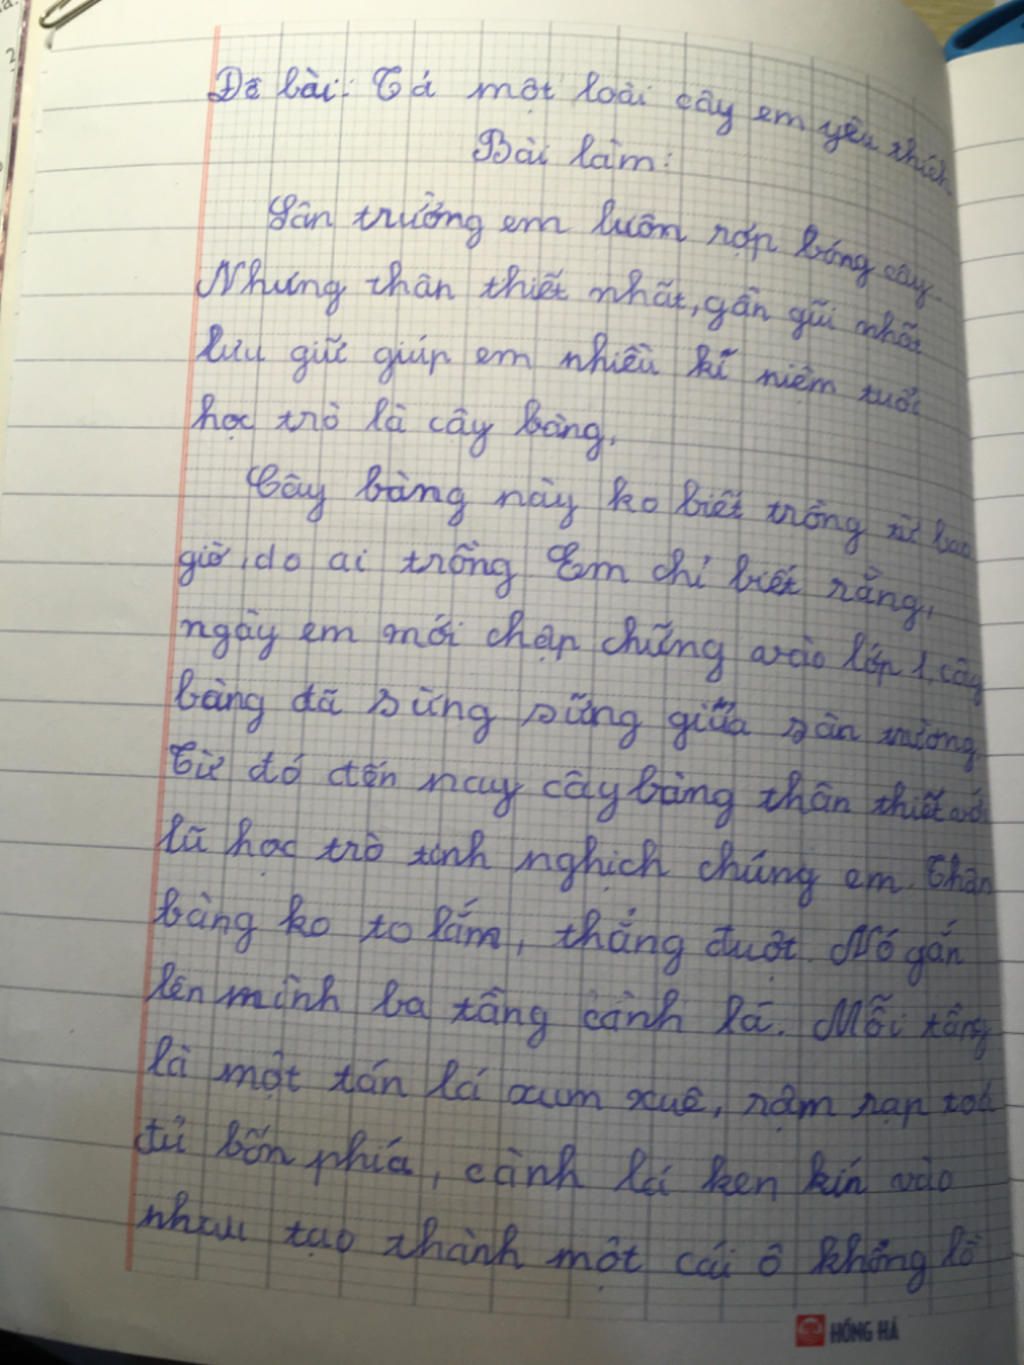 Đề bài: Tả một loài cây em yêu thích
Bài làm:
Sân trường em luôn rợp bóng cây.
Nhưng thân thiết nhất, gần gũi nhất
lưu giữ giúp em nhiều kĩ niệm tuổi
học trò là cây bàng.
Cây bàng này ko biết trồng từ bao
giờ, do ai trồng Em chỉ biết rằng,
ngày em mới chập chững vào lớp 1, cây
bàng đã sừng sững giữa sân trường.
Từ đó đến nay cây bàng thân thiết với
lũ học trò tinh nghịch chúng em. Thân
bàng ko to lắm, thẳng đuột. Nó gắn
lên mình ba tầng cành lá. Mỗi tầng
là một tán lá xum xuê, rậm rạp toả
đủ bốn phía, cành lá ken kín vào
nhau tạo thành một cái ô khổng lồ
HỒNG HÀ